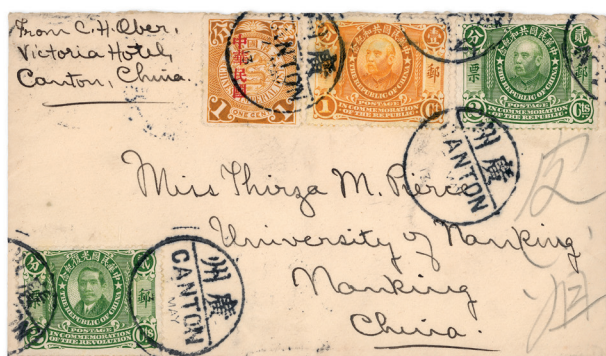 From C.H. Ober,
Victoria Hotel,
Canton, China.
中華民國
1
ONE CENT
中華民國共和紀念
THE REPUBLIC OF CHINA
郵
1 Ct
POSTAGE
IN COMMEMORATION
OF THE REPUBLIC
中華民國共和紀念
分 貳
THE REPUBLIC OF CHINA
票 郵
2 Cts
POSTAGE
IN COMMEMORATION
OF THE REPUBLIC
廣州
CANTON
Miss Thirza M. Pierce
University of Nanking,
Nanking
China.
中華民國光復紀念
THE REPUBLIC OF CHINA
郵
2 Cts
POSTAGE
IN COMMEMORATION
OF THE REVOLUTION
廣州
CANTON
MAY